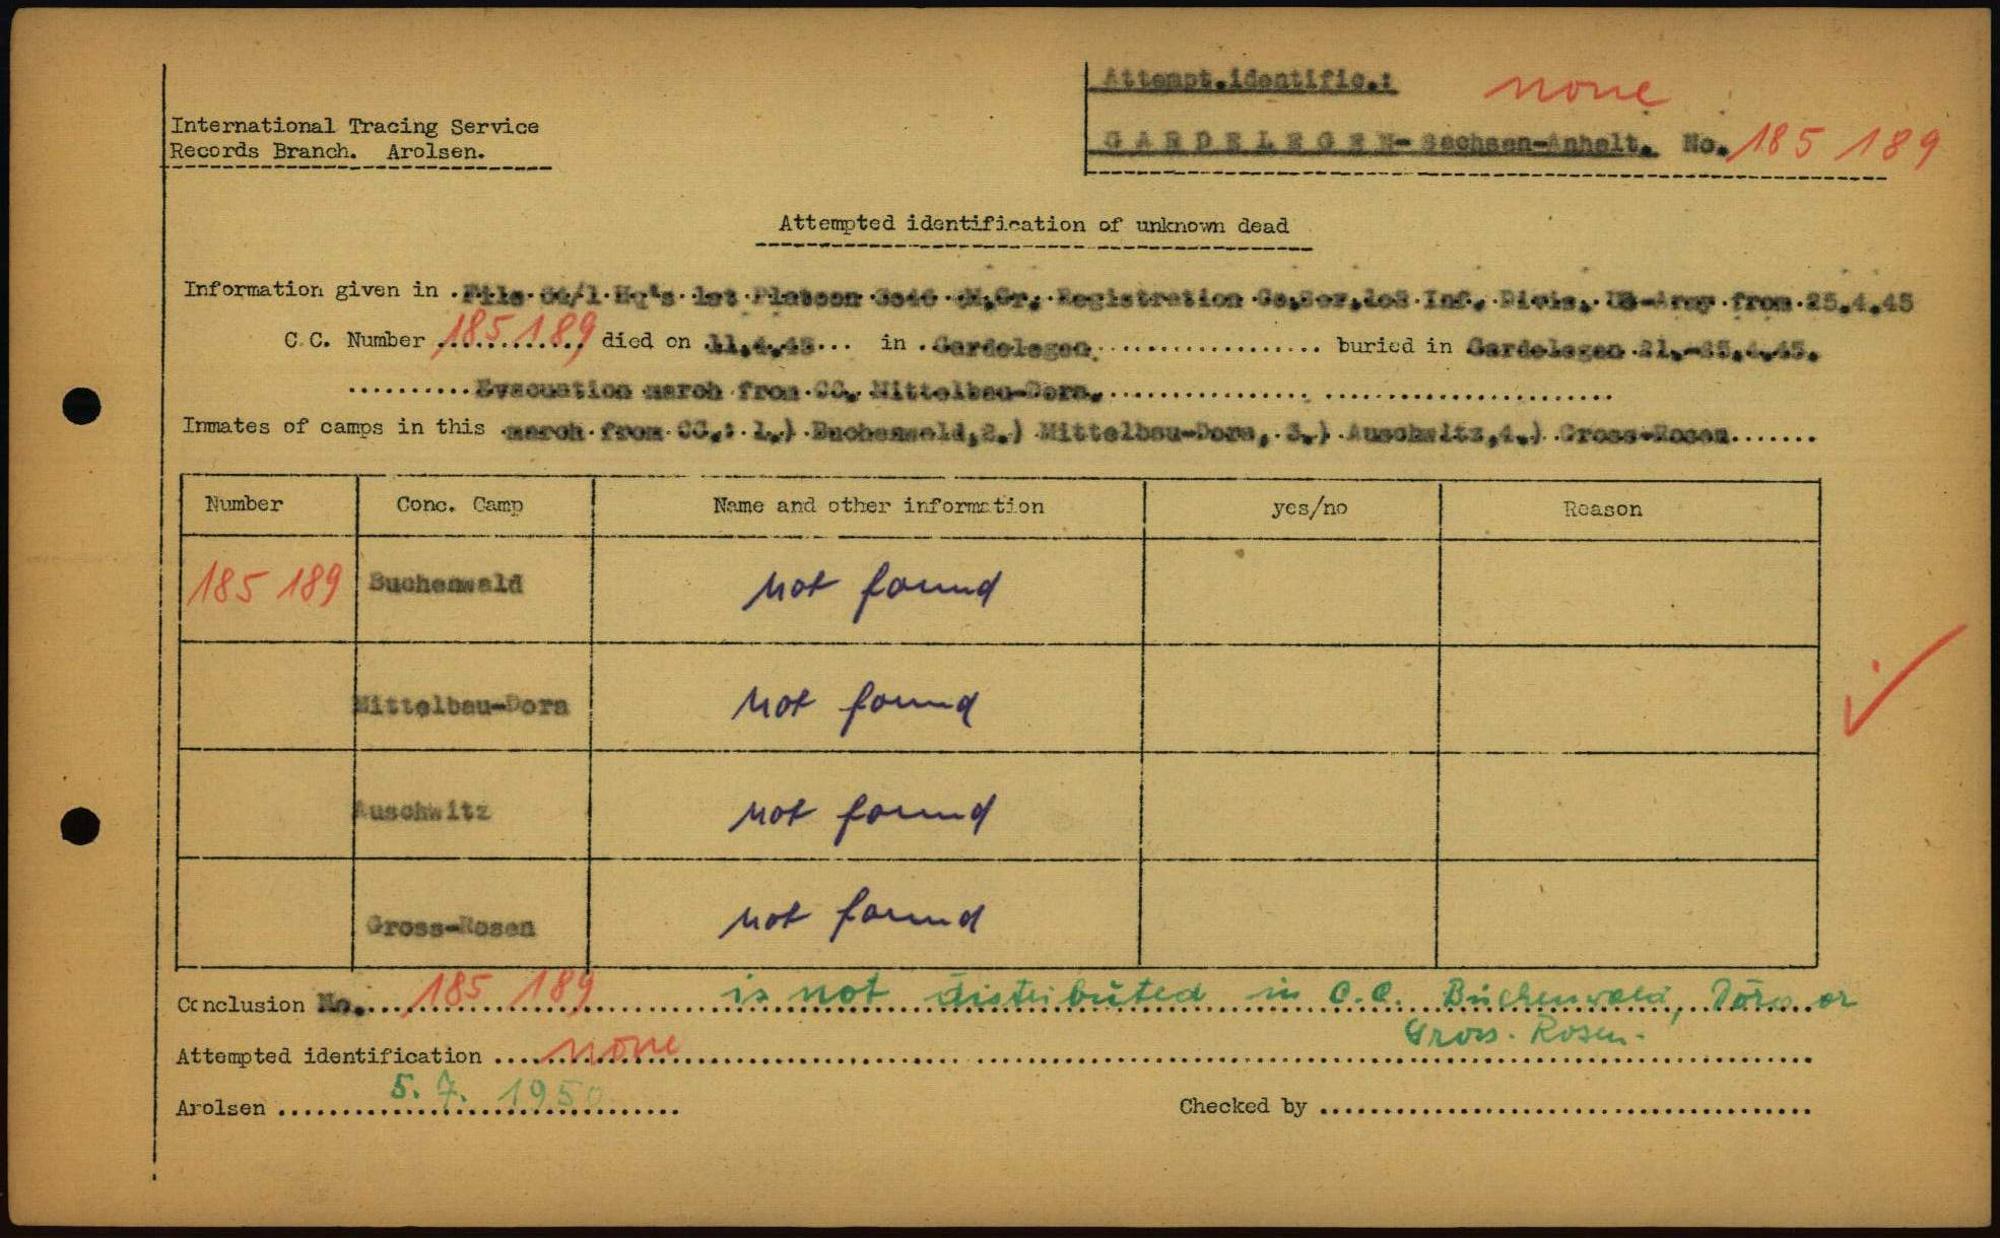 Attempt.identific.: none
International Tracing Service
Records Branch. Arolsen.
GARDELEGEN- Sachsen-Anhalt. No. 185 189
Attempted identification of unknown dead
Information given in File Hq's 1st Platoon Registration Inf. Divis. US-Army from 25.4.45
C.C. Number 185 189 died on 11.4.45 in Gardelegen buried in Gardelegen 21.-25.4.45.
Evacuation march from CC. Mittelbau-Dora.
Inmates of camps in this march from CC.: 1.) Buchenwald, 2.) Mittelbau-Dora, 3.) Auschwitz, 4.) Gross-Rosen
Number Conc. Camp Name and other information yes/no Reason
185 189 Buchenwald not found
Mittelbau-Dora not found
Auschwitz not found
Gross-Rosen not found
Conclusion No. 185 189 is not distributed in C.C. Buchenwald, Dora or
Gross-Rosen.
Attempted identification none
Arolsen 5. 7. 1950 Checked by